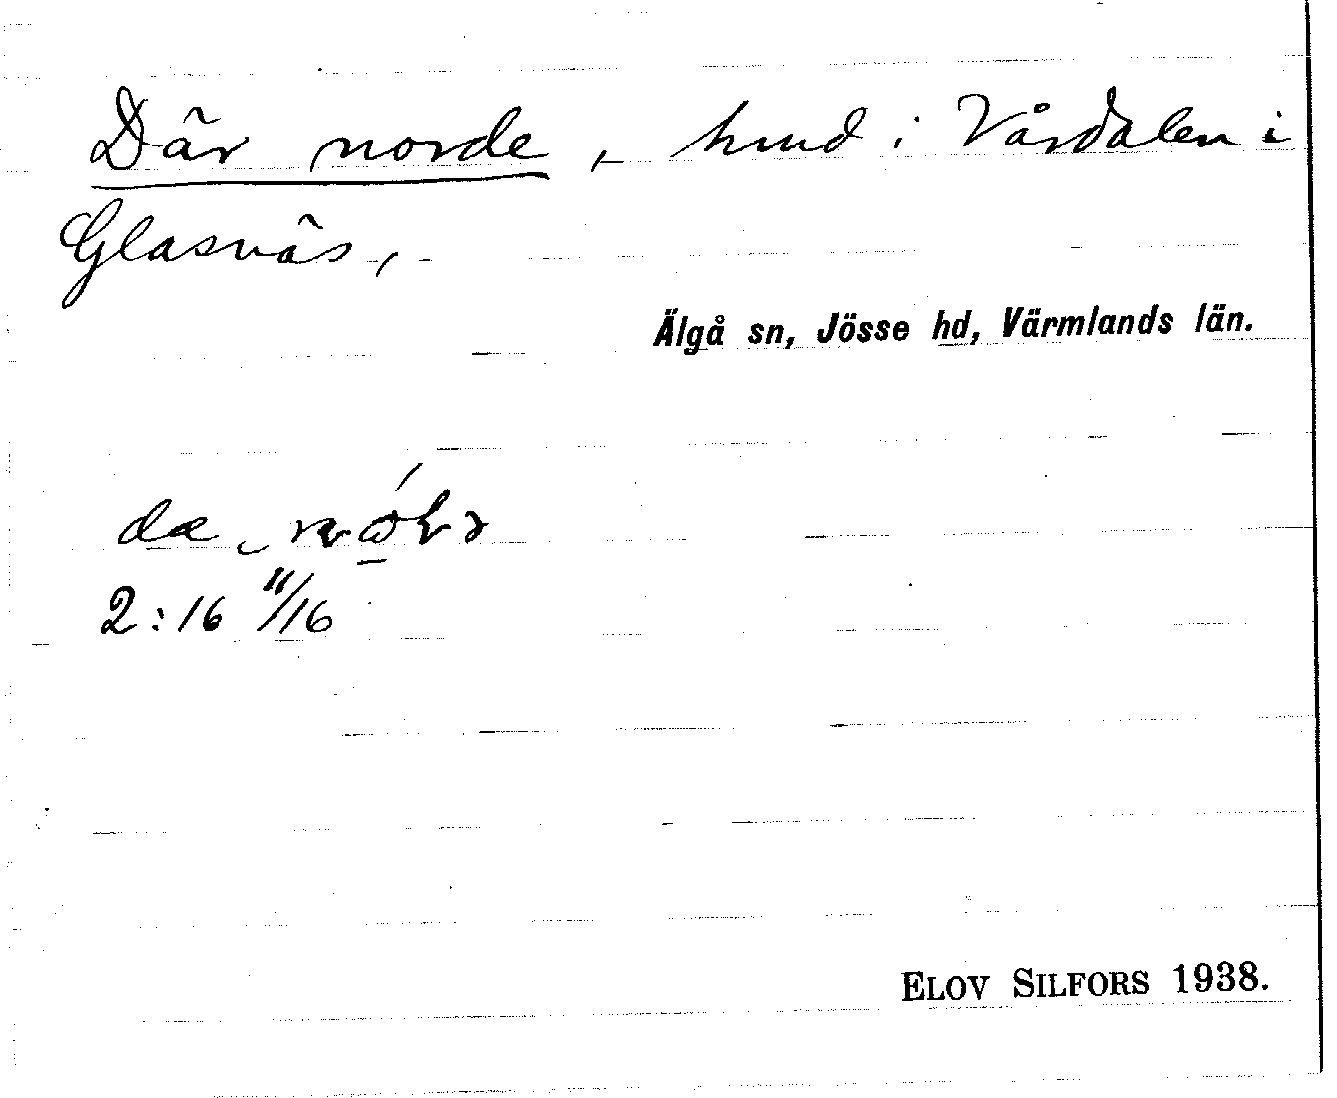 Där norde, hmd i Vårdalen i
Glasnäs,
Älgå sn, Jösse hd, Värmlands län.
2:16 11/16
ELOV SILFORS 1938.